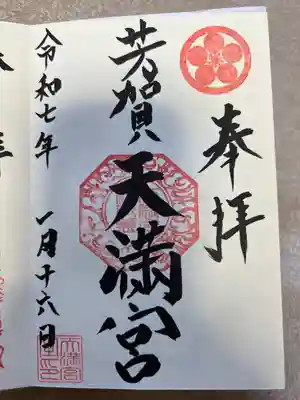 奉拝
芳賀天満宮
令和七年 一月十六日